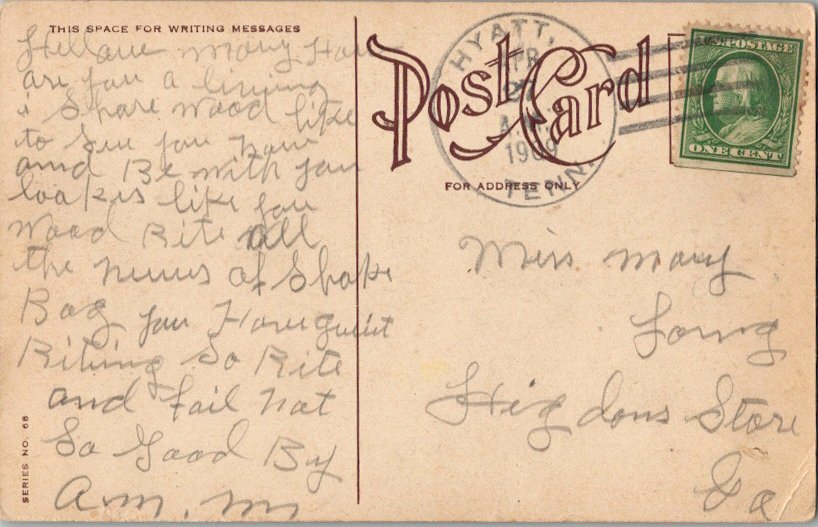 THIS SPACE FOR WRITING MESSAGES
Hellow Mary How
are you a living
i Shore wood like
to See you now
and Be with you
lookes like you
wood Rite all
the news of Shake
Rag you Have quiit
Riting So Rite
and fail not
So Good By
A. M. M
SERIES NO. 68
Post Card
FOR ADDRESS ONLY
HYATT,
APR
A.M.
1909
TENN.
U.S. POSTAGE
ONE CENT
Miss Mary
Long
Higdons Store
Ga